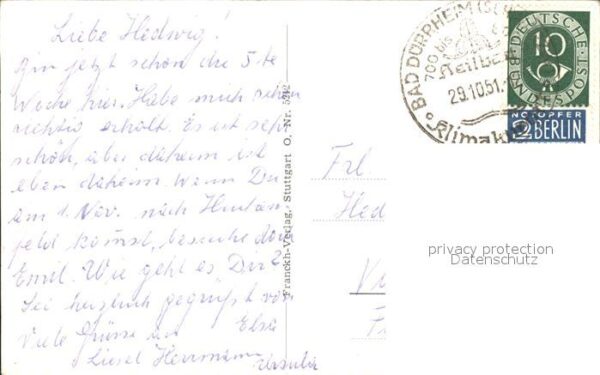 Liebe Hedwig!
Bin jetzt schon die 5-te
Woche hier. Habe mich schon
richtig erholt. Es ist sehr
schön, aber daheim ist
eben daheim. Wenn Du
am 1. Nov. nach
feld kommst, besuche doch
Emil. Wie geht es Dir?
Sei herzlich gegrüßt von
Viele Grüsse Elsa
Liesel Herrmann Ursula
Franckh-Verlag, Stuttgart O, Nr.
BAD DÜRRHEIM
700 bis
29.10.51.
Klimak
DEUTSCHE BUNDESPOST
10
NOTOPFER
2 BERLIN
Frl.
Hed
privacy protection
Datenschutz